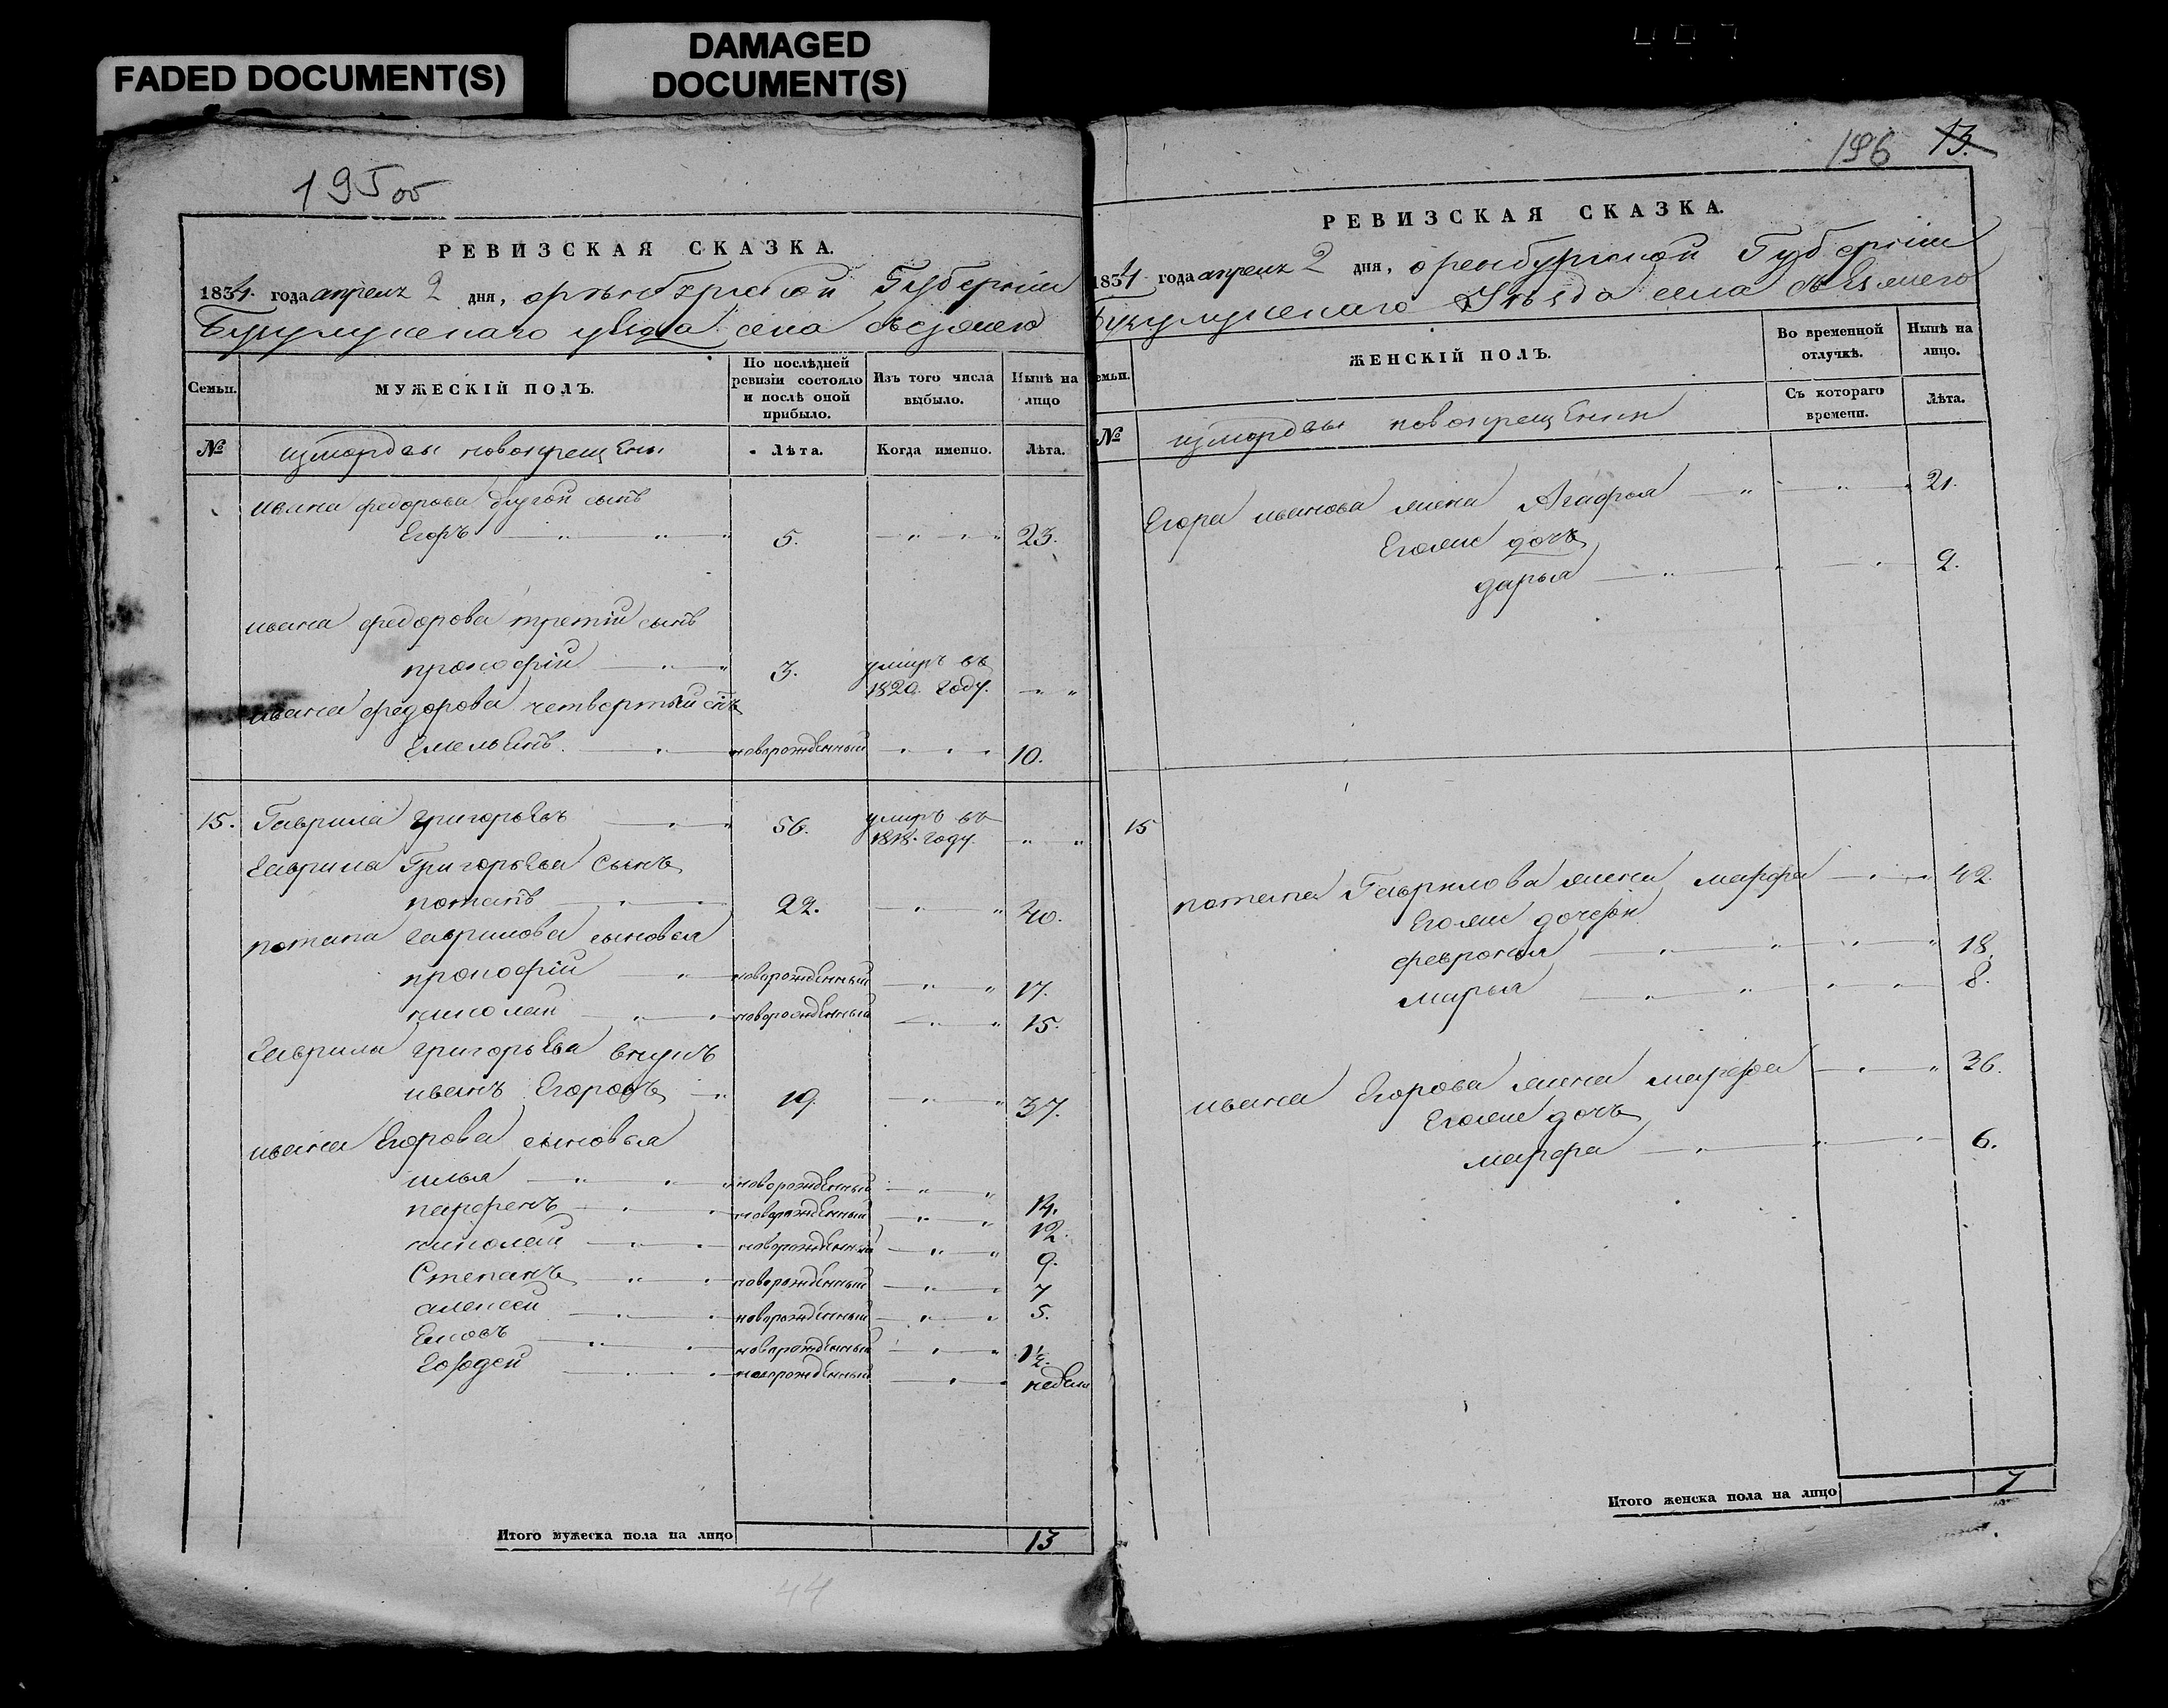 FADED DOCUMENT(S)
DAMAGED
DOCUMENT(S)
195 об
РЕВИЗСКАЯ СКАЗКА.
1834. года апреля 2 дня, оренбургской Губернiи
Бугурусланскаго уѣзда села
Семьи.
МУЖЕСКIЙ ПОЛЪ.
По послѣдней ревизiи состояло и послѣ оной прибыло.
Изъ того числа выбыло.
Нынѣ на лицо
№ измордвы новокрещены Лѣта. Когда именно. Лѣта.
ивана федорова другой сынъ
Егоръ — " " 5. — " " 23.
ивана федорова третiй сынъ
прокофiй — " 3. умиръ въ 1820. году. — " "
ивана федорова четвертый снъ
Емельянъ. — " новорожденный " " " 10.
15. Гаврила григорьевъ — " 56. умиръ въ 1818. году. — " "
Гаврила Григорьева сынъ
потапъ — " 22. — " " 40.
потапа гаврилова сыновья
прокофiй — " новорожденный — " " 17.
николай — " новорожденный — " " 15.
Гаврила григорьева внукъ
иванъ Егоровъ — " 19. — " " 37.
ивана Егорова сыновья
илья — " " новорожденный — " " 14.
парфенъ — " новорожденный — " " 12.
николай — " новорожденный — " " 9.
Степанъ — " новорожденный — " " 7
алексей — " новорожденный — " " 5.
— " новорожденный " " 1½.
— " новорожденный — " недели
Итого мужеска пола на лицо 13
44
196 13.
РЕВИЗСКАЯ СКАЗКА.
1834 года апреля 2 дня, оренбургской Губернiи
Бугурусланскаго Уѣзда села
Семьи.
ЖЕНСКIЙ ПОЛЪ.
Во временной отлучкѣ.
Нынѣ на лицо.
№ измордвы новокрещены Съ котораго времени. Лѣта.
Егора иванова жена Агафья — " " 21.
Егоже дочь
дарья — " " 2.
15
потапа Гаврилова жена марфа — " 42.
Егоже дочери
февронья — " " " " 18.
марья — " " " " 8.
ивана Егорова жена марфа — " " 36.
Егоже дочь
марфа — " " 6.
Итого женска пола на лицо 7